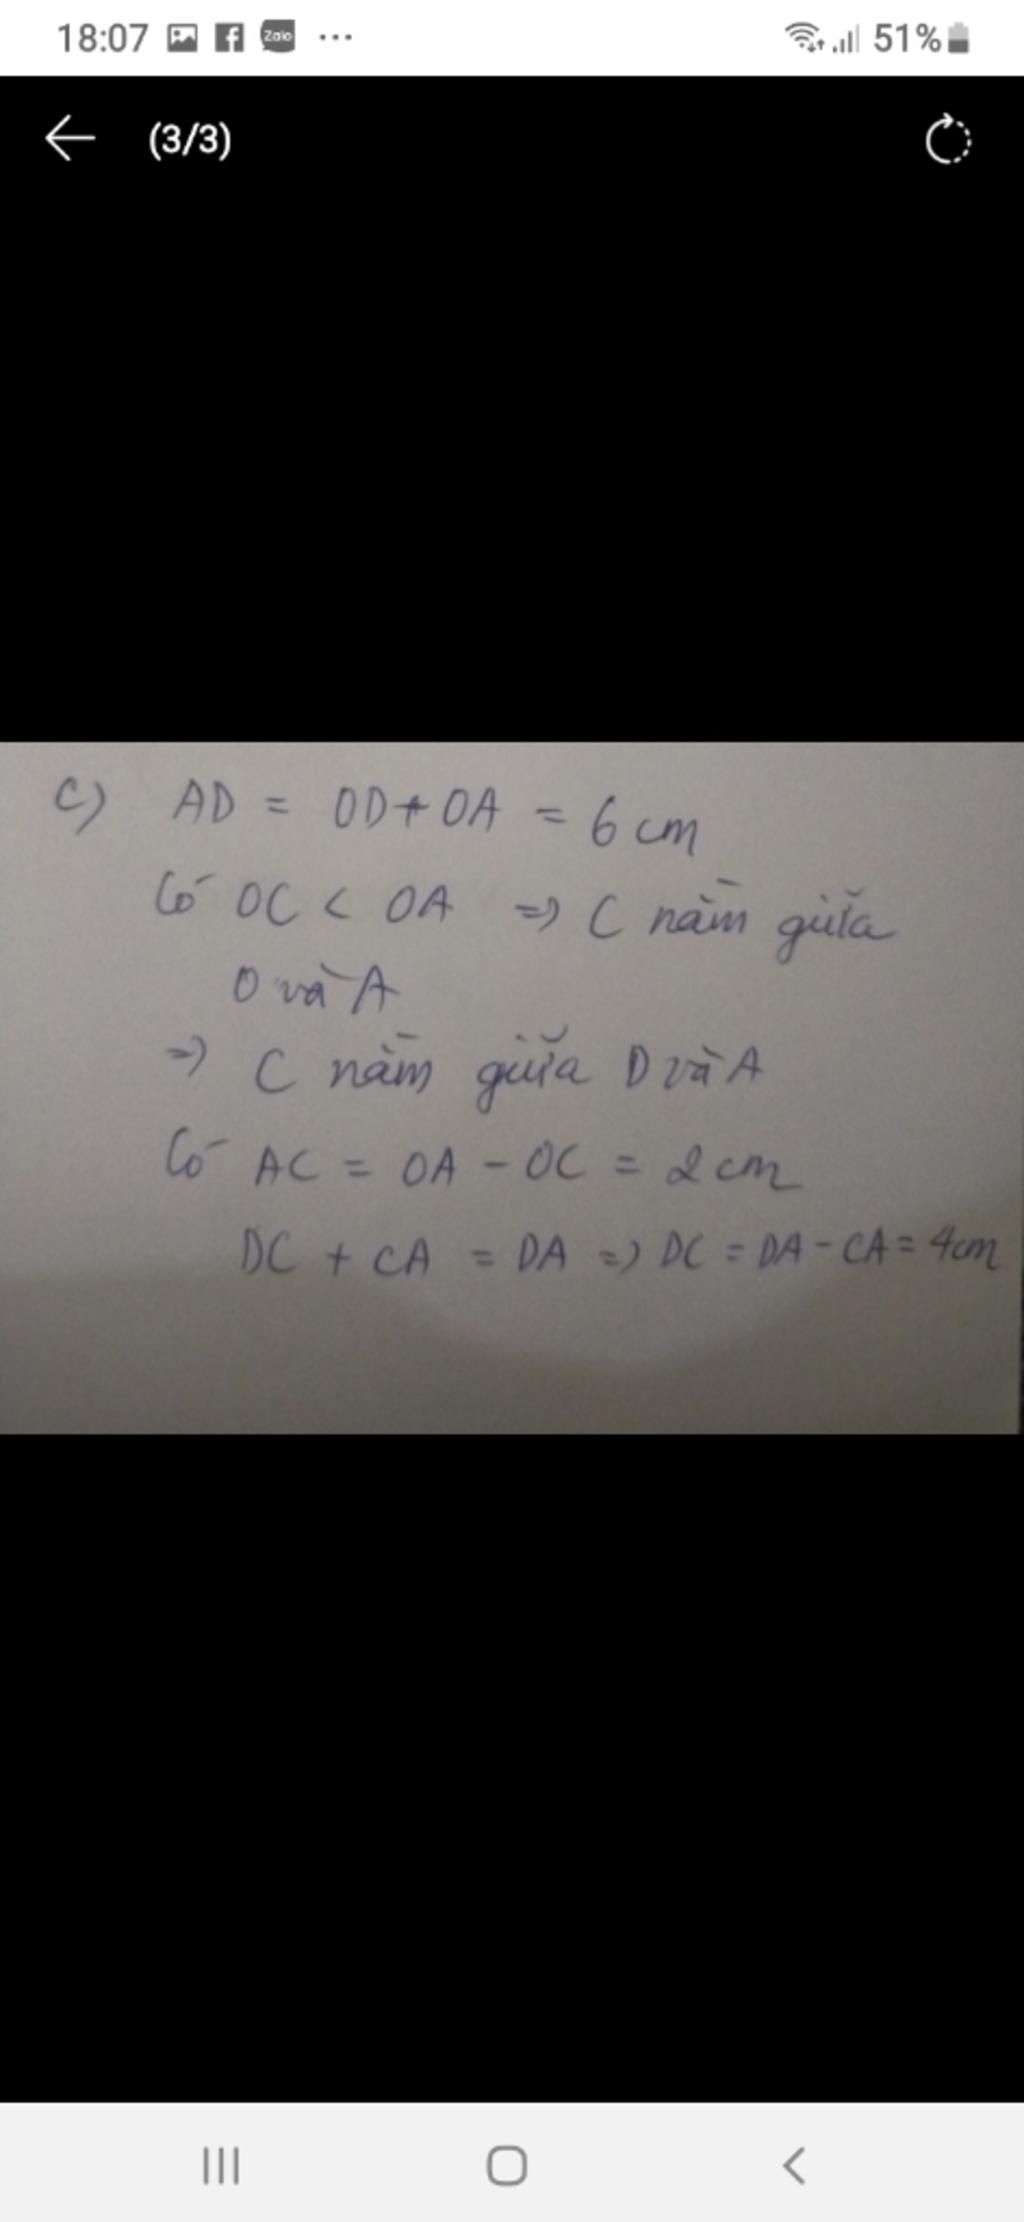 18:07 Zalo ... 51%
(3/3)
c) AD = OD + OA = 6 cm
Có OC < OA => C nằm giữa
O và A
=> C nằm giữa D và A
Có AC = OA - OC = 2 cm
DC + CA = DA => DC = DA - CA = 4cm